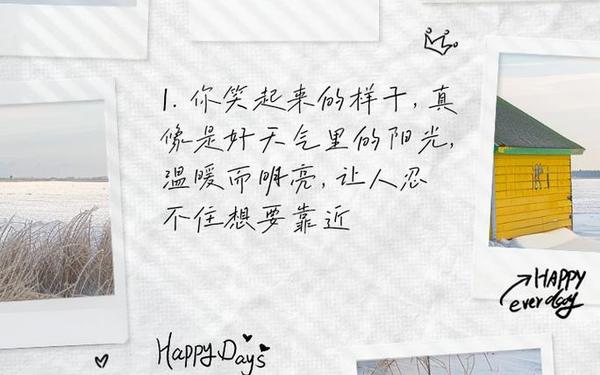 1. 你笑起来的样子,真
像是好天气里的阳光,
温暖而明亮,让人忍
不住想要靠近
HAPPY
everday
Happy Days